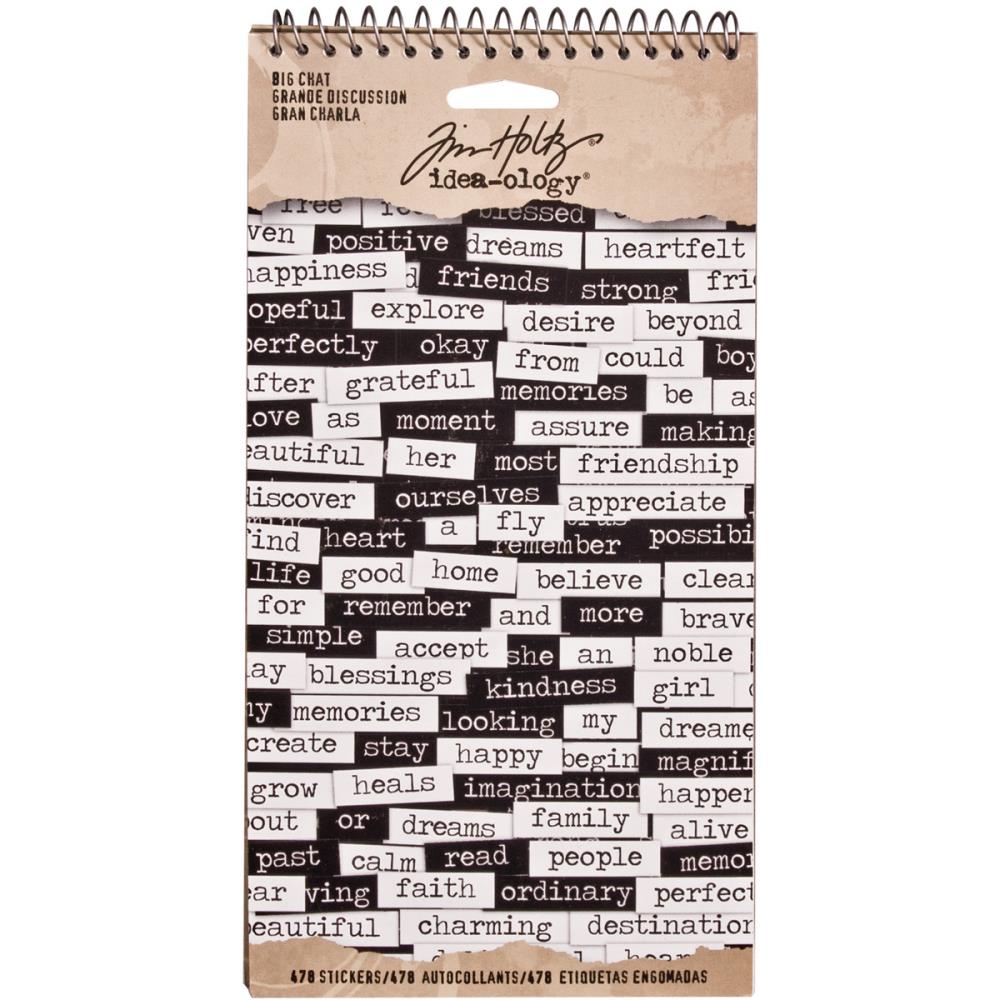 BIG CHAT
GRANDE DISCUSSION
GRAN CHARLA
Tim Holtz®
idea-ology®
free blessed
ven positive dreams heartfelt
appiness d friends strong frie
opeful explore desire beyond
erfectly okay from could boy
fter grateful memories be as
ove as moment assure making
eautiful her most friendship
iscover ourselves appreciate
find heart a fly remember possibi
life good home believe clear
for remember and more brave
simple accept she an noble
ay blessings kindness girl
y memories looking my dreame
create stay happy begin magnif
grow heals imagination happen
out or dreams family alive
past calm read people memor
ear ving faith ordinary perfect
eautiful charming destination
478 STICKERS/478 AUTOCOLLANTS/478 ETIQUETAS ENGOMADAS